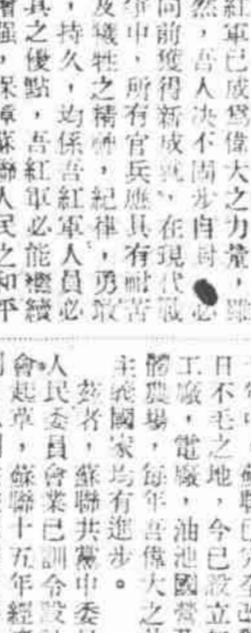 紅軍已成為偉大之力量，雖
然，吾人決不固步自封，必
向前獲得新成就，在現代戰
爭中，所有官兵應具有耐苦
及犧牲之精神，紀律，勇敢
，持久，均係吾紅軍人員必
具之優點，吾紅軍必能繼續
增強，保障蘇聯人民之和平
日不毛之地，今已設立
工廠，電廠，油池國營
體農場，每年吾偉大之
主義國家均有進步。
茲者，蘇聯共黨中委
人民委員會業已訓令設
會起草，蘇聯十五年經